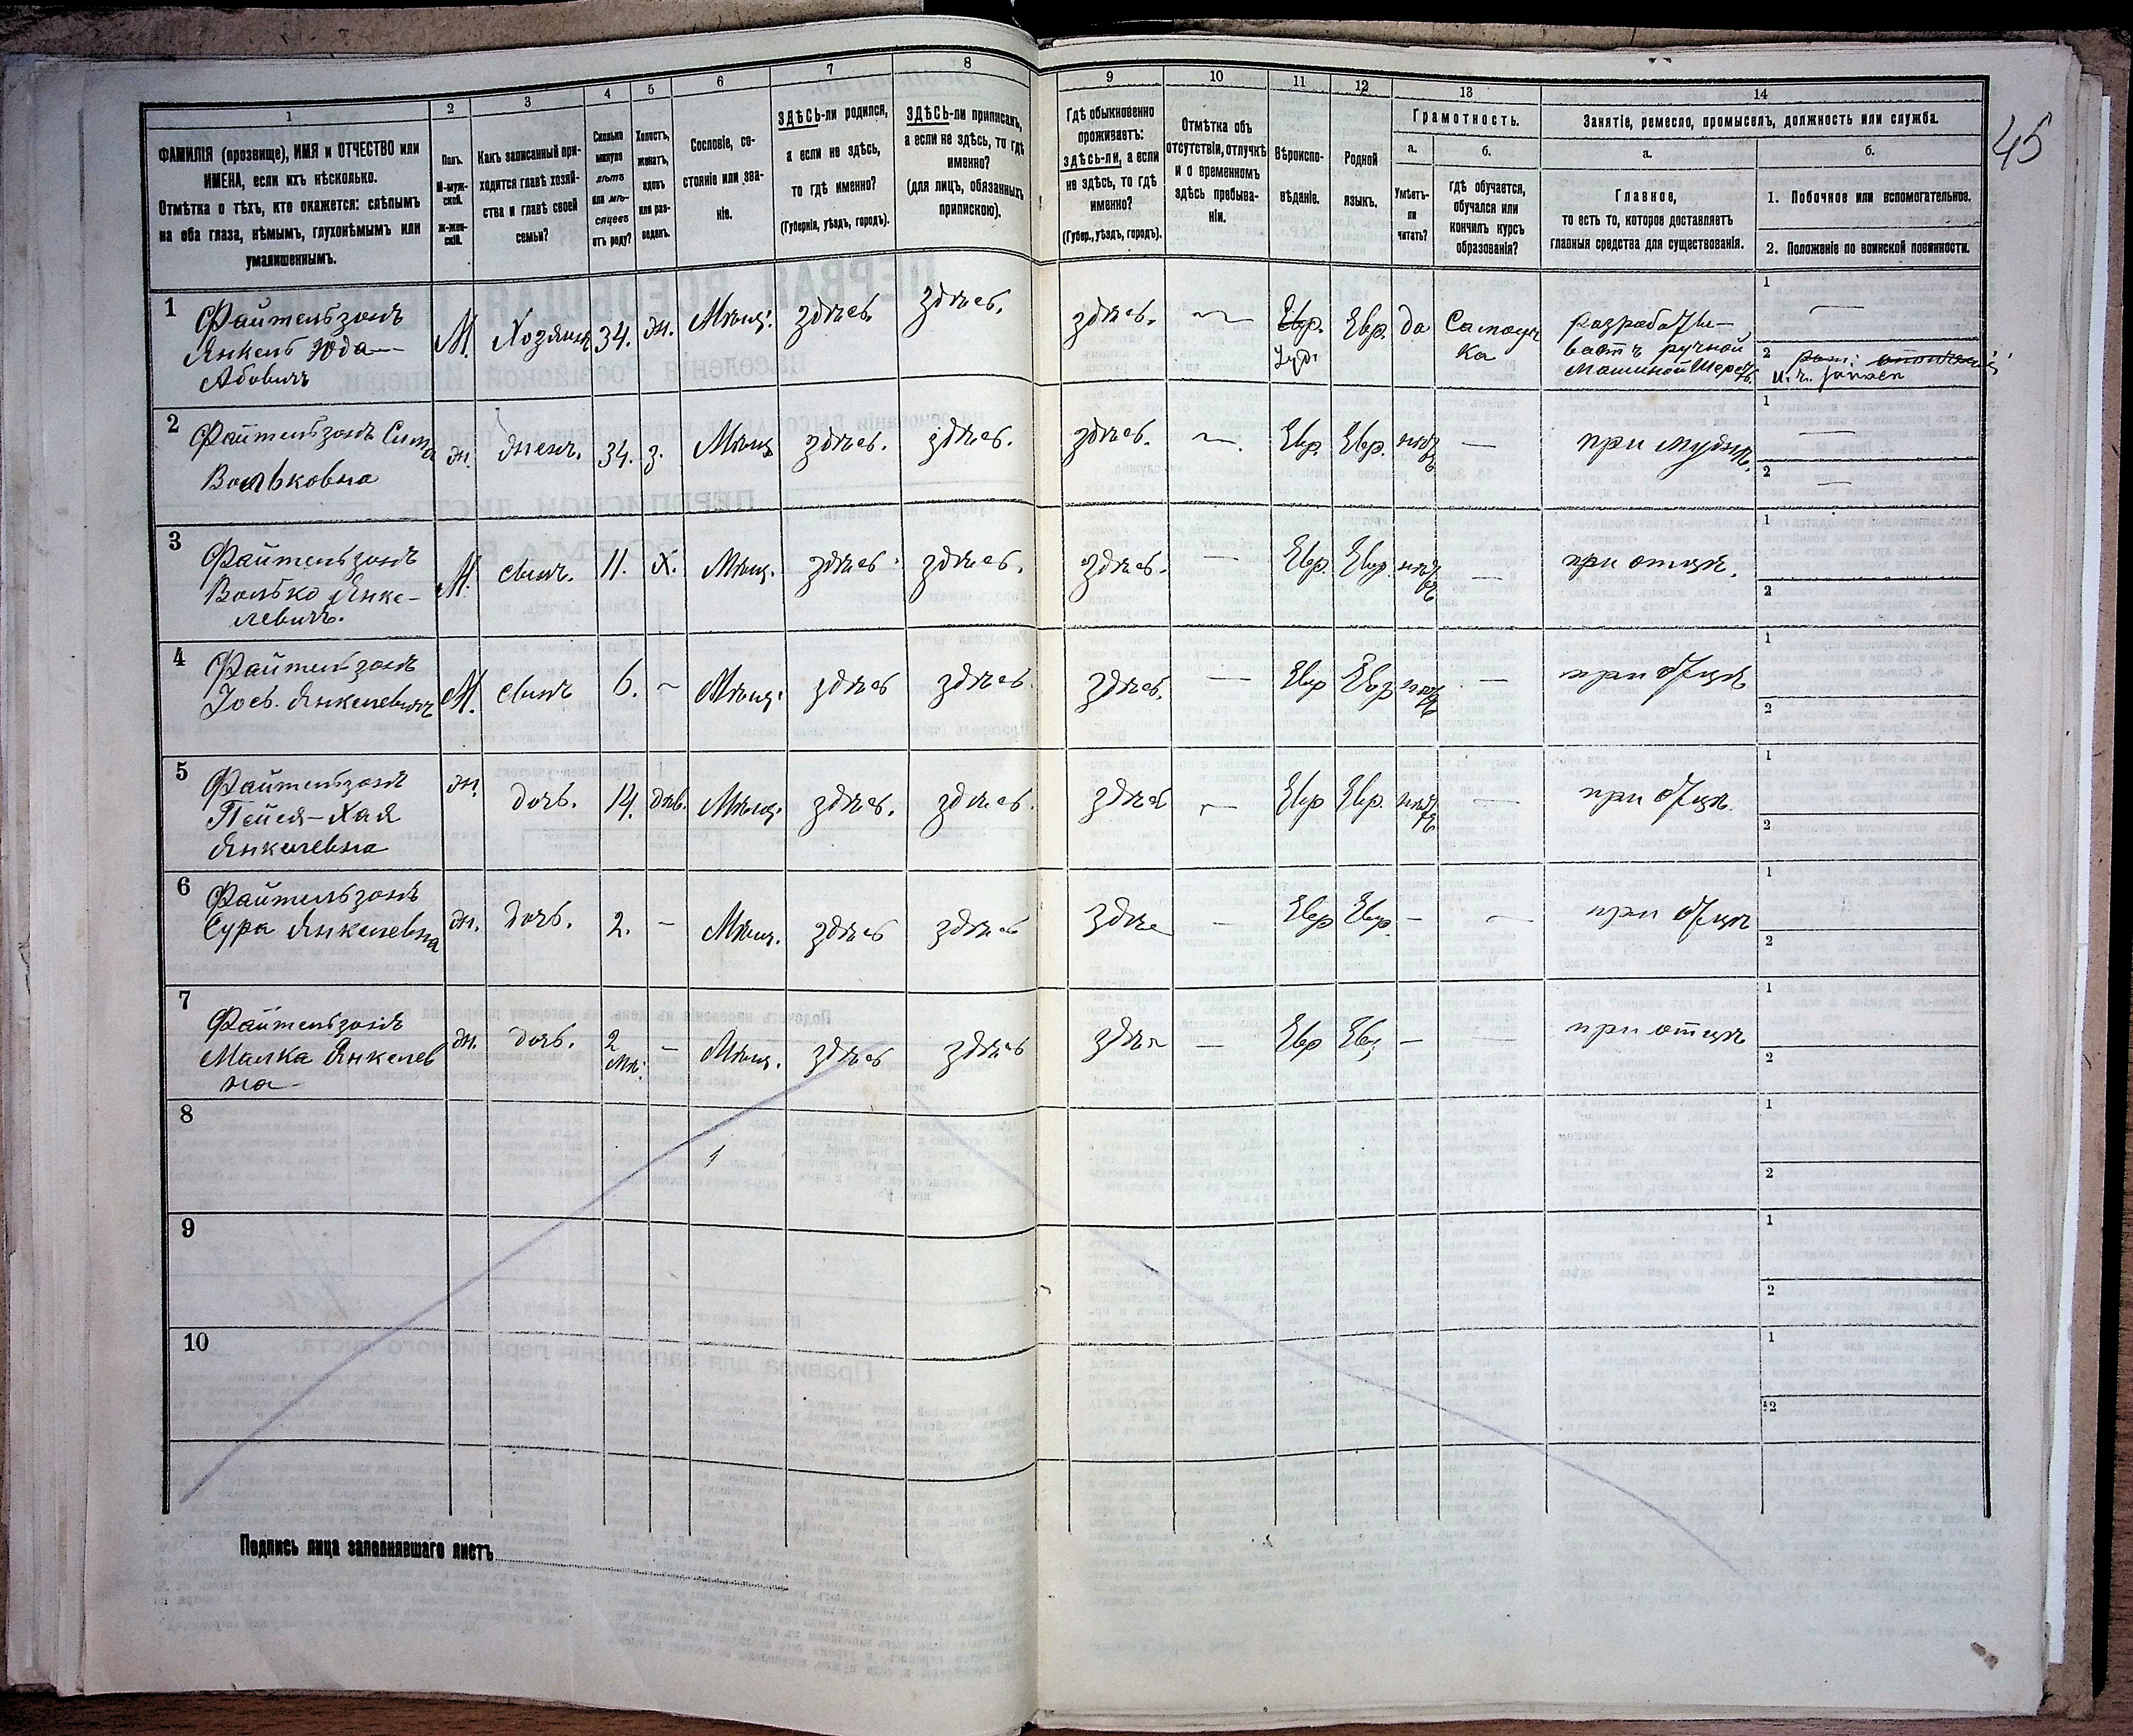 45
1
2
3
4
5
6
7
8
9
10
11
12
13
14
ФАМИЛІЯ (прозвище), ИМЯ и ОТЧЕСТВО или
ИМЕНА, если ихъ нѣсколько.
Отмѣтка о тѣхъ, кто окажется: слѣпымъ
на оба глаза, нѣмымъ, глухонѣмымъ или
умалишеннымъ.
Полъ.
М-муж-
ской.
Ж-жен-
скій.
Какъ записанный при-
ходится главѣ хозяй-
ства и главѣ своей
семьи?
Сколько
минуло
лѣтъ
или мѣ-
сяцевъ
отъ роду?
Холостъ,
женатъ,
вдовъ
или раз-
веденъ.
Сословіе, со-
стояніе или зва-
ніе.
ЗДѢСЬ-ли родился,
а если не здѣсь,
то гдѣ именно?
(Губернія, уѣздъ, городъ).
ЗДѢСЬ-ли приписанъ,
а если не здѣсь, то гдѣ
именно?
(для лицъ, обязанныхъ
припискою).
Гдѣ обыкновенно
проживаетъ:
здѣсь-ли, а если
не здѣсь, то гдѣ
именно?
(Губер., уѣздъ, городъ).
Отмѣтка объ
отсутствіи, отлучкѣ
и о временномъ
здѣсь пребыва-
ніи.
Вѣроиспо-
вѣданіе.
Родной
языкъ.
Грамотность.
а.
Умѣетъ-
ли
читать?
б.
гдѣ обучается,
обучался или
кончилъ курсъ
образованія?
Занятіе, ремесло, промыселъ, должность или служба.
а.
Главное,
то есть то, которое доставляетъ
главныя средства для существованія.
б.
1. Побочное или вспомогательное.
2. Положеніе по воинской повинности.
1 Файтельзонъ
Янкель Юда
Абовичъ
М. Хозяинъ 34. ж. Мѣщ. здѣсь. здѣсь. здѣсь. — Евр. Іуд. Евр. да Самоуч
ка
разрабаты-
ваетъ ручной
машиной шерсть.
1 —
2
2 Файтельзонъ Сима
Вольковна
ж. жена. 34. з. Мѣщ здѣсь. здѣсь. здѣсь. — Евр. Евр. нѣтъ — при мужѣ.
1 —
2 —
3 Файтельзонъ
Волько Янке-
левичъ.
М. сынъ. 11. х. Мѣщ. здѣсь. здѣсь. здѣсь. — Евр. Евр. нѣтъ — при отцѣ.
1
2
4 Файтельзонъ
Іось. Янкелевичъ
М. сынъ 6. — Мѣщ. здѣсь здѣсь. здѣсь. — Евр Евр нѣтъ — при отцѣ
1
2
5 Файтельзонъ
Пейся-Хая
Янкелевна
ж. дочь. 14. дѣв. Мѣщ. здѣсь. здѣсь. здѣсь — Евр Евр. нѣтъ — при отцѣ.
1
2
6 Файтельзонъ
Сура Янкелевна
ж. дочь. 2. — Мѣщ. здѣсь здѣсь здѣсь — Евр Евр. — — при отцѣ
1
2
7 Файтельзонъ
Малка Янкелев
на
ж. дочь. 2
мѣ. — Мѣщ. здѣсь здѣсь здѣсь — Евр Евр — — при отцѣ
1
2
8
1
2
9
1
2
10
1
2
Подпись лица заполнявшаго листъ